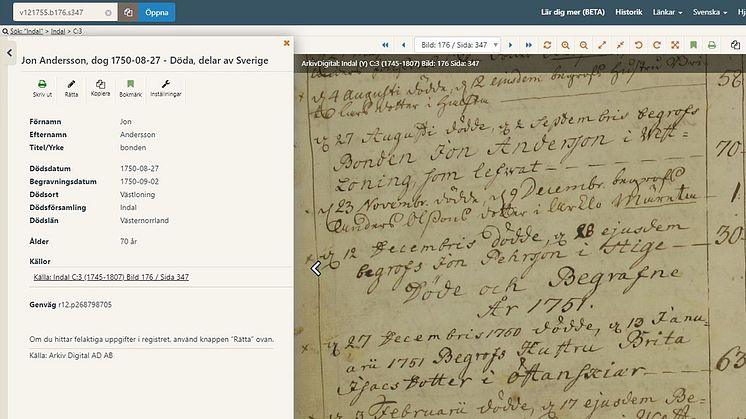 v121755.b176.s347
Öppna
Lär dig mer (BETA) Historik Länkar Svenska
Sök: "Indal" > Indal > C:3
Bild: 176 / Sida: 347
Jon Andersson, dog 1750-08-27 - Döda, delar av Sverige
ArkivDigital: Indal (Y) C:3 (1745-1807) Bild: 176 Sida: 347
Skriv ut Rätta Kopiera Bokmärk Inställningar
Förnamn Jon
Efternamn Andersson
Titel/Yrke bonden
Dödsdatum 1750-08-27
Begravningsdatum 1750-09-02
Dödsort Västloning
Dödsförsamling Indal
Dödslän Västernorrland
Ålder 70 år
Källor
Källa: Indal C:3 (1745-1807) Bild 176 / Sida 347
Genväg r12.p268798705
Om du hittar felaktiga uppgifter i registret, använd knappen "Rätta" ovan.
Källa: Arkiv Digital AD AB
d 4 augusti dödde, d 12 ejusdem begrofs Hustru 58
d 27 Augusti dödde, d 2 Septembris begrofs
Bonden Jon Anderson i West-
Loning, som lefwat 70
d 23 Novembr. dödde, d 9 Decembr. begrofs
dotter i 1
d 12 Decembris dödde, d 26 ejusdem
begrofs Jon Pehrson i Stige 30
Döde och Begrafne
År 1751.
d 27 Decembris 1750 dödde, d 13 Janu-
arii 1751 Begrofs Hustru Brita
Isacs dotter i 63
Februarii dödde, d 17 ejusdem Be-